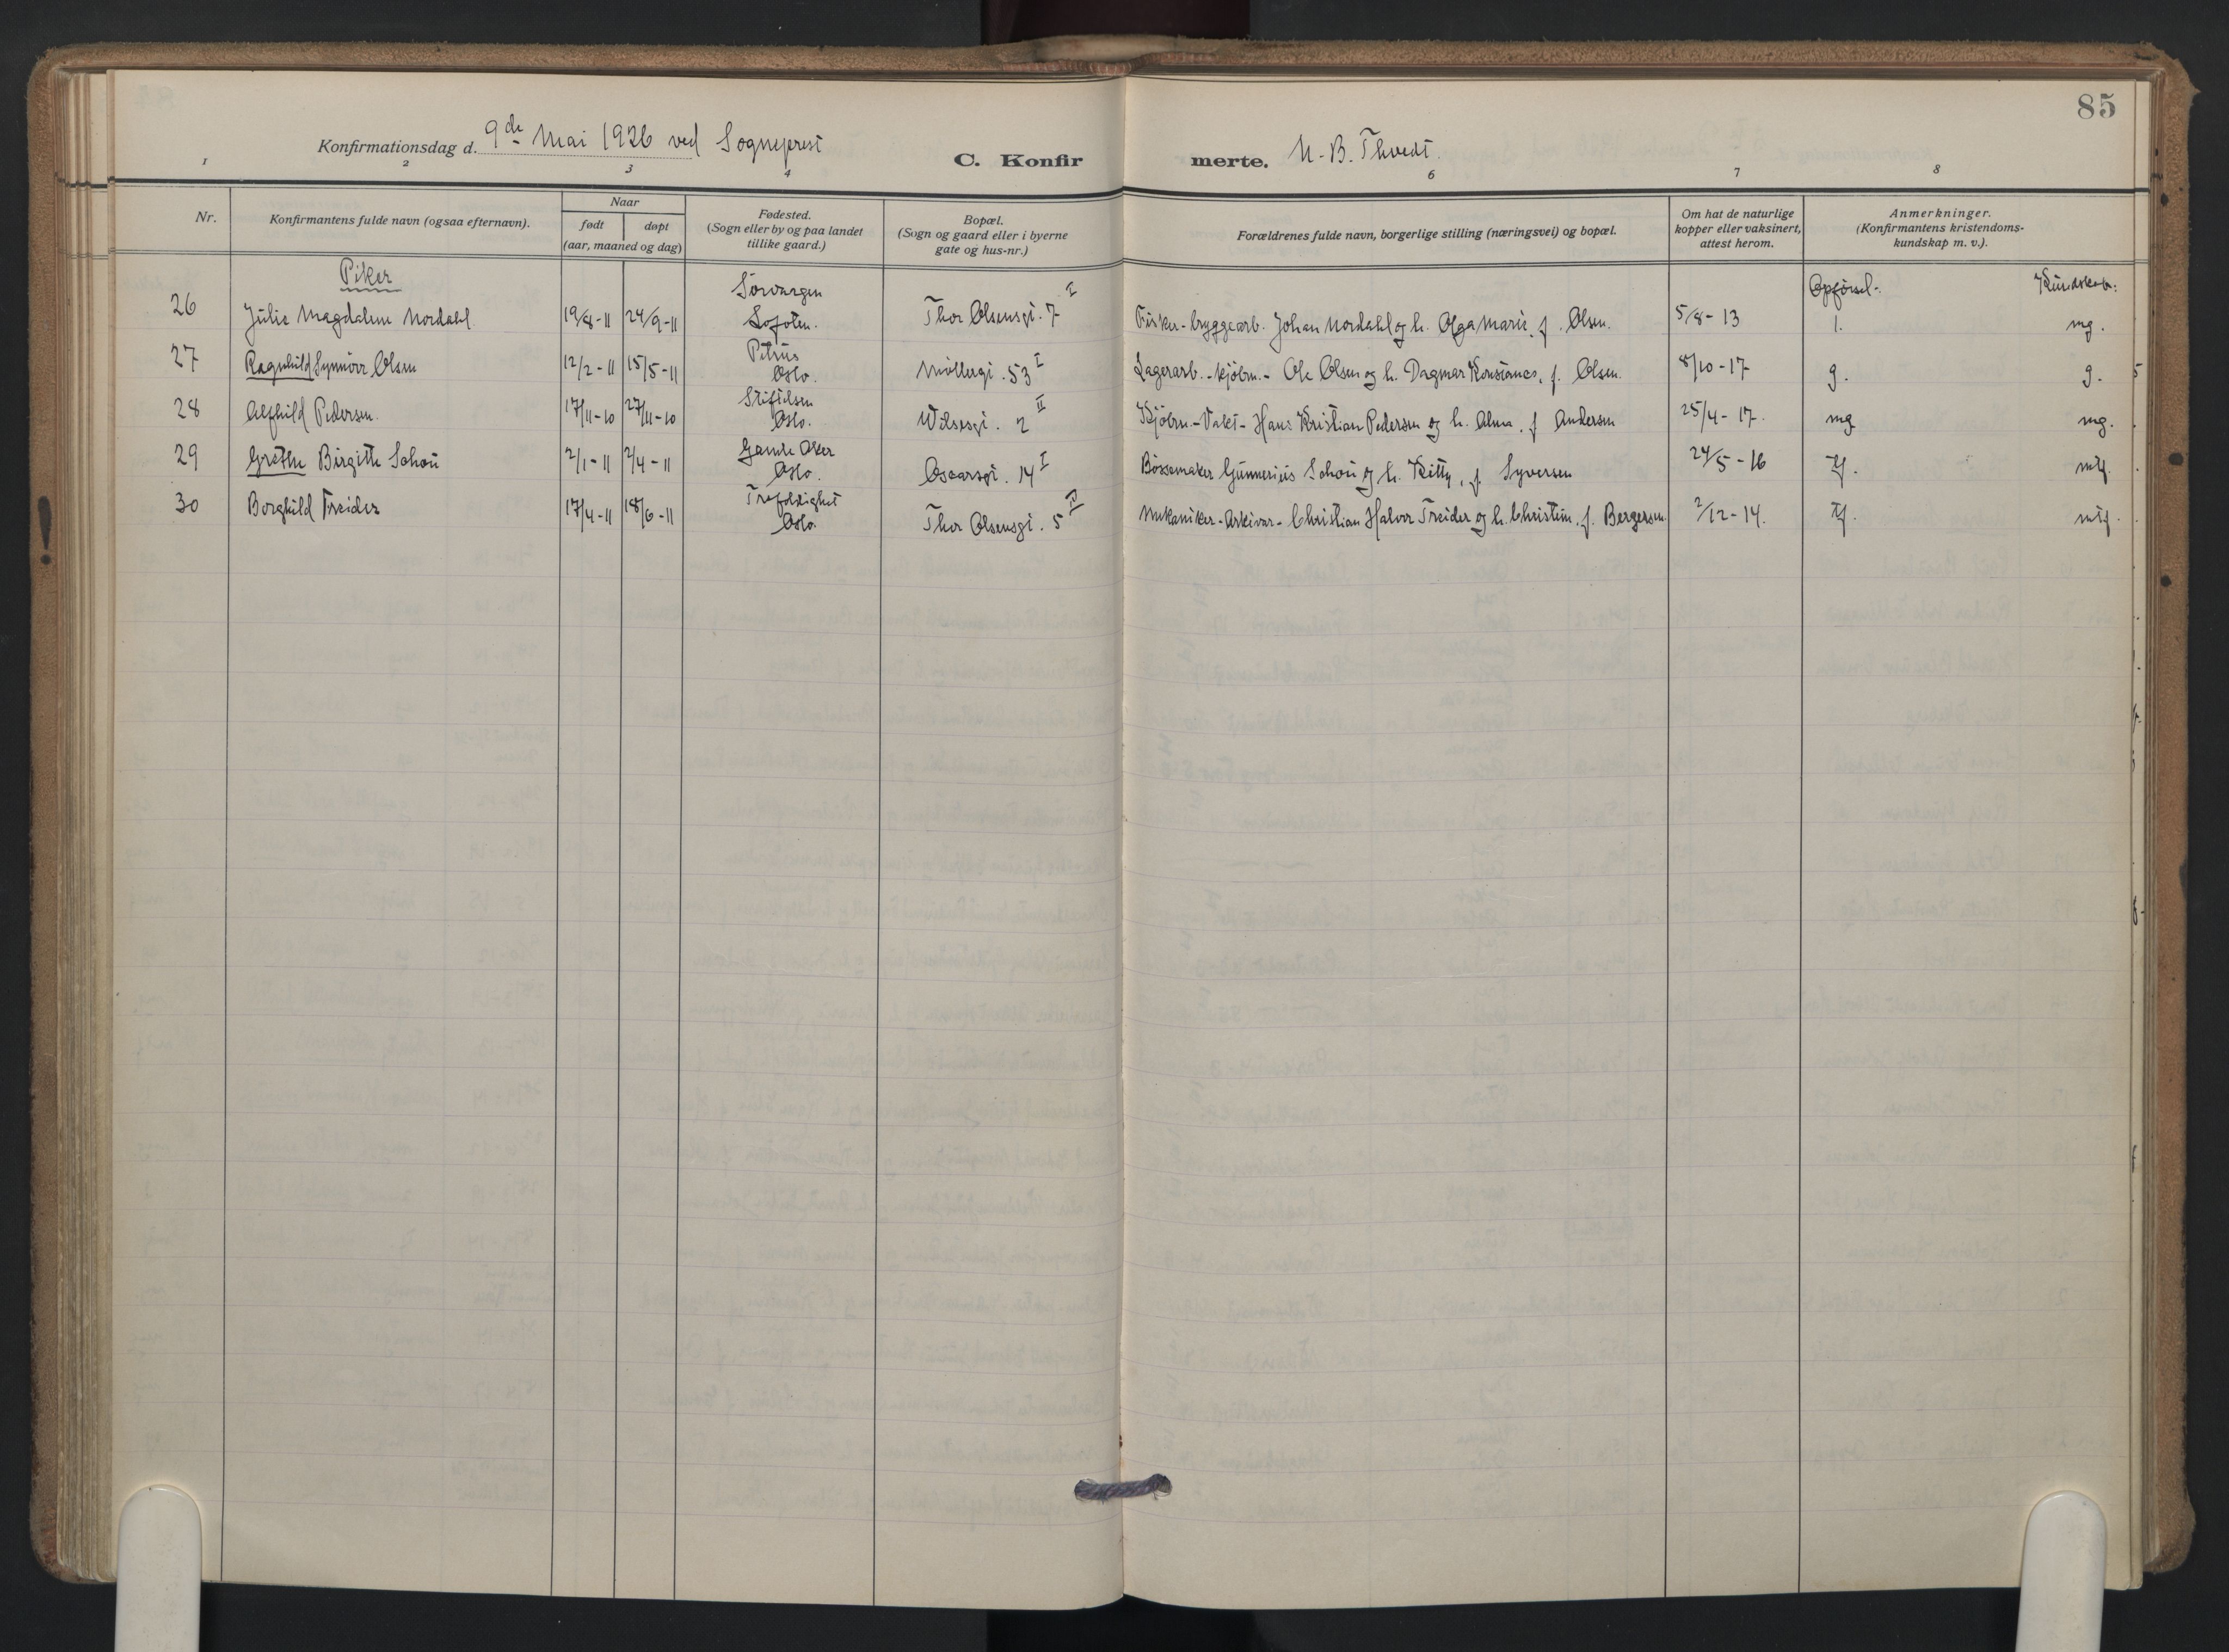 85
Konfirmationsdag d. 9de Mai 1926 ved Sogneprest C. Konfir merte. N. B. Thvedt.
1 2 3 4 6 7 8
Nr.
Konfirmantens fulde navn (ogsaa efternavn).
Naar
født døpt
(aar, maaned og dag)
Fødested.
(Sogn eller by og paa landet
tillike gaard.)
Bopæl.
(Sogn og gaard eller i byerne
gate og hus-nr.)
Forældrenes fulde navn, borgerlige stilling (næringsvei) og bopæl.
Om hat de naturlige
kopper eller vaksinert,
attest herom.
Anmerkninger.
(Konfirmantens kristendoms-
kundskap m. v.).
Piker
Opførsel. Kundskab:
Sørvaagen
26 Julie Magdalene Nordahl. 19/8-11 24/9-11 Lofoten. Thor Olsensgt. 7 I Fisker-bryggearb. Johan Nordahl og h. Olga Marie, f. Olsen. 5/8-13 l. mg.
Petrus
27 Ragnhild Synnöve Olsen 12/2-11 15/5-11 Oslo. Møllergt. 53 I Lagerarb.-kjöbm.- Ole Olsen og h. Dagmar Konstance, f. Olsen. 8/10-17 g. g.
Stiftelsen
28 Alfhild Pedersen. 17/11-10 27/11-10 Oslo. Wilsesgt. 2 II Kjöbm.-Vakt- Hans Kristian Pedersen og h. Alma, f. Andersen 25/4-17. mg mg.
Gamle Aker
29 Grethe Birgitte Schou 2/1-11 2/4-11 Oslo. Oscarsgt. 14 I Bössemaker Gunnerius Schou og h. Kitty, f. Syversen 24/5-16 Tf. mtf.
Trefoldighet
30 Borghild Treider 17/4-11 18/6-11 Oslo. Thor Olsensgt. 5 IV Mekaniker-Arkivar- Christian Halvor Treider og h. Christine, f. Bergersen. 2/12-14. Tf. mtf.